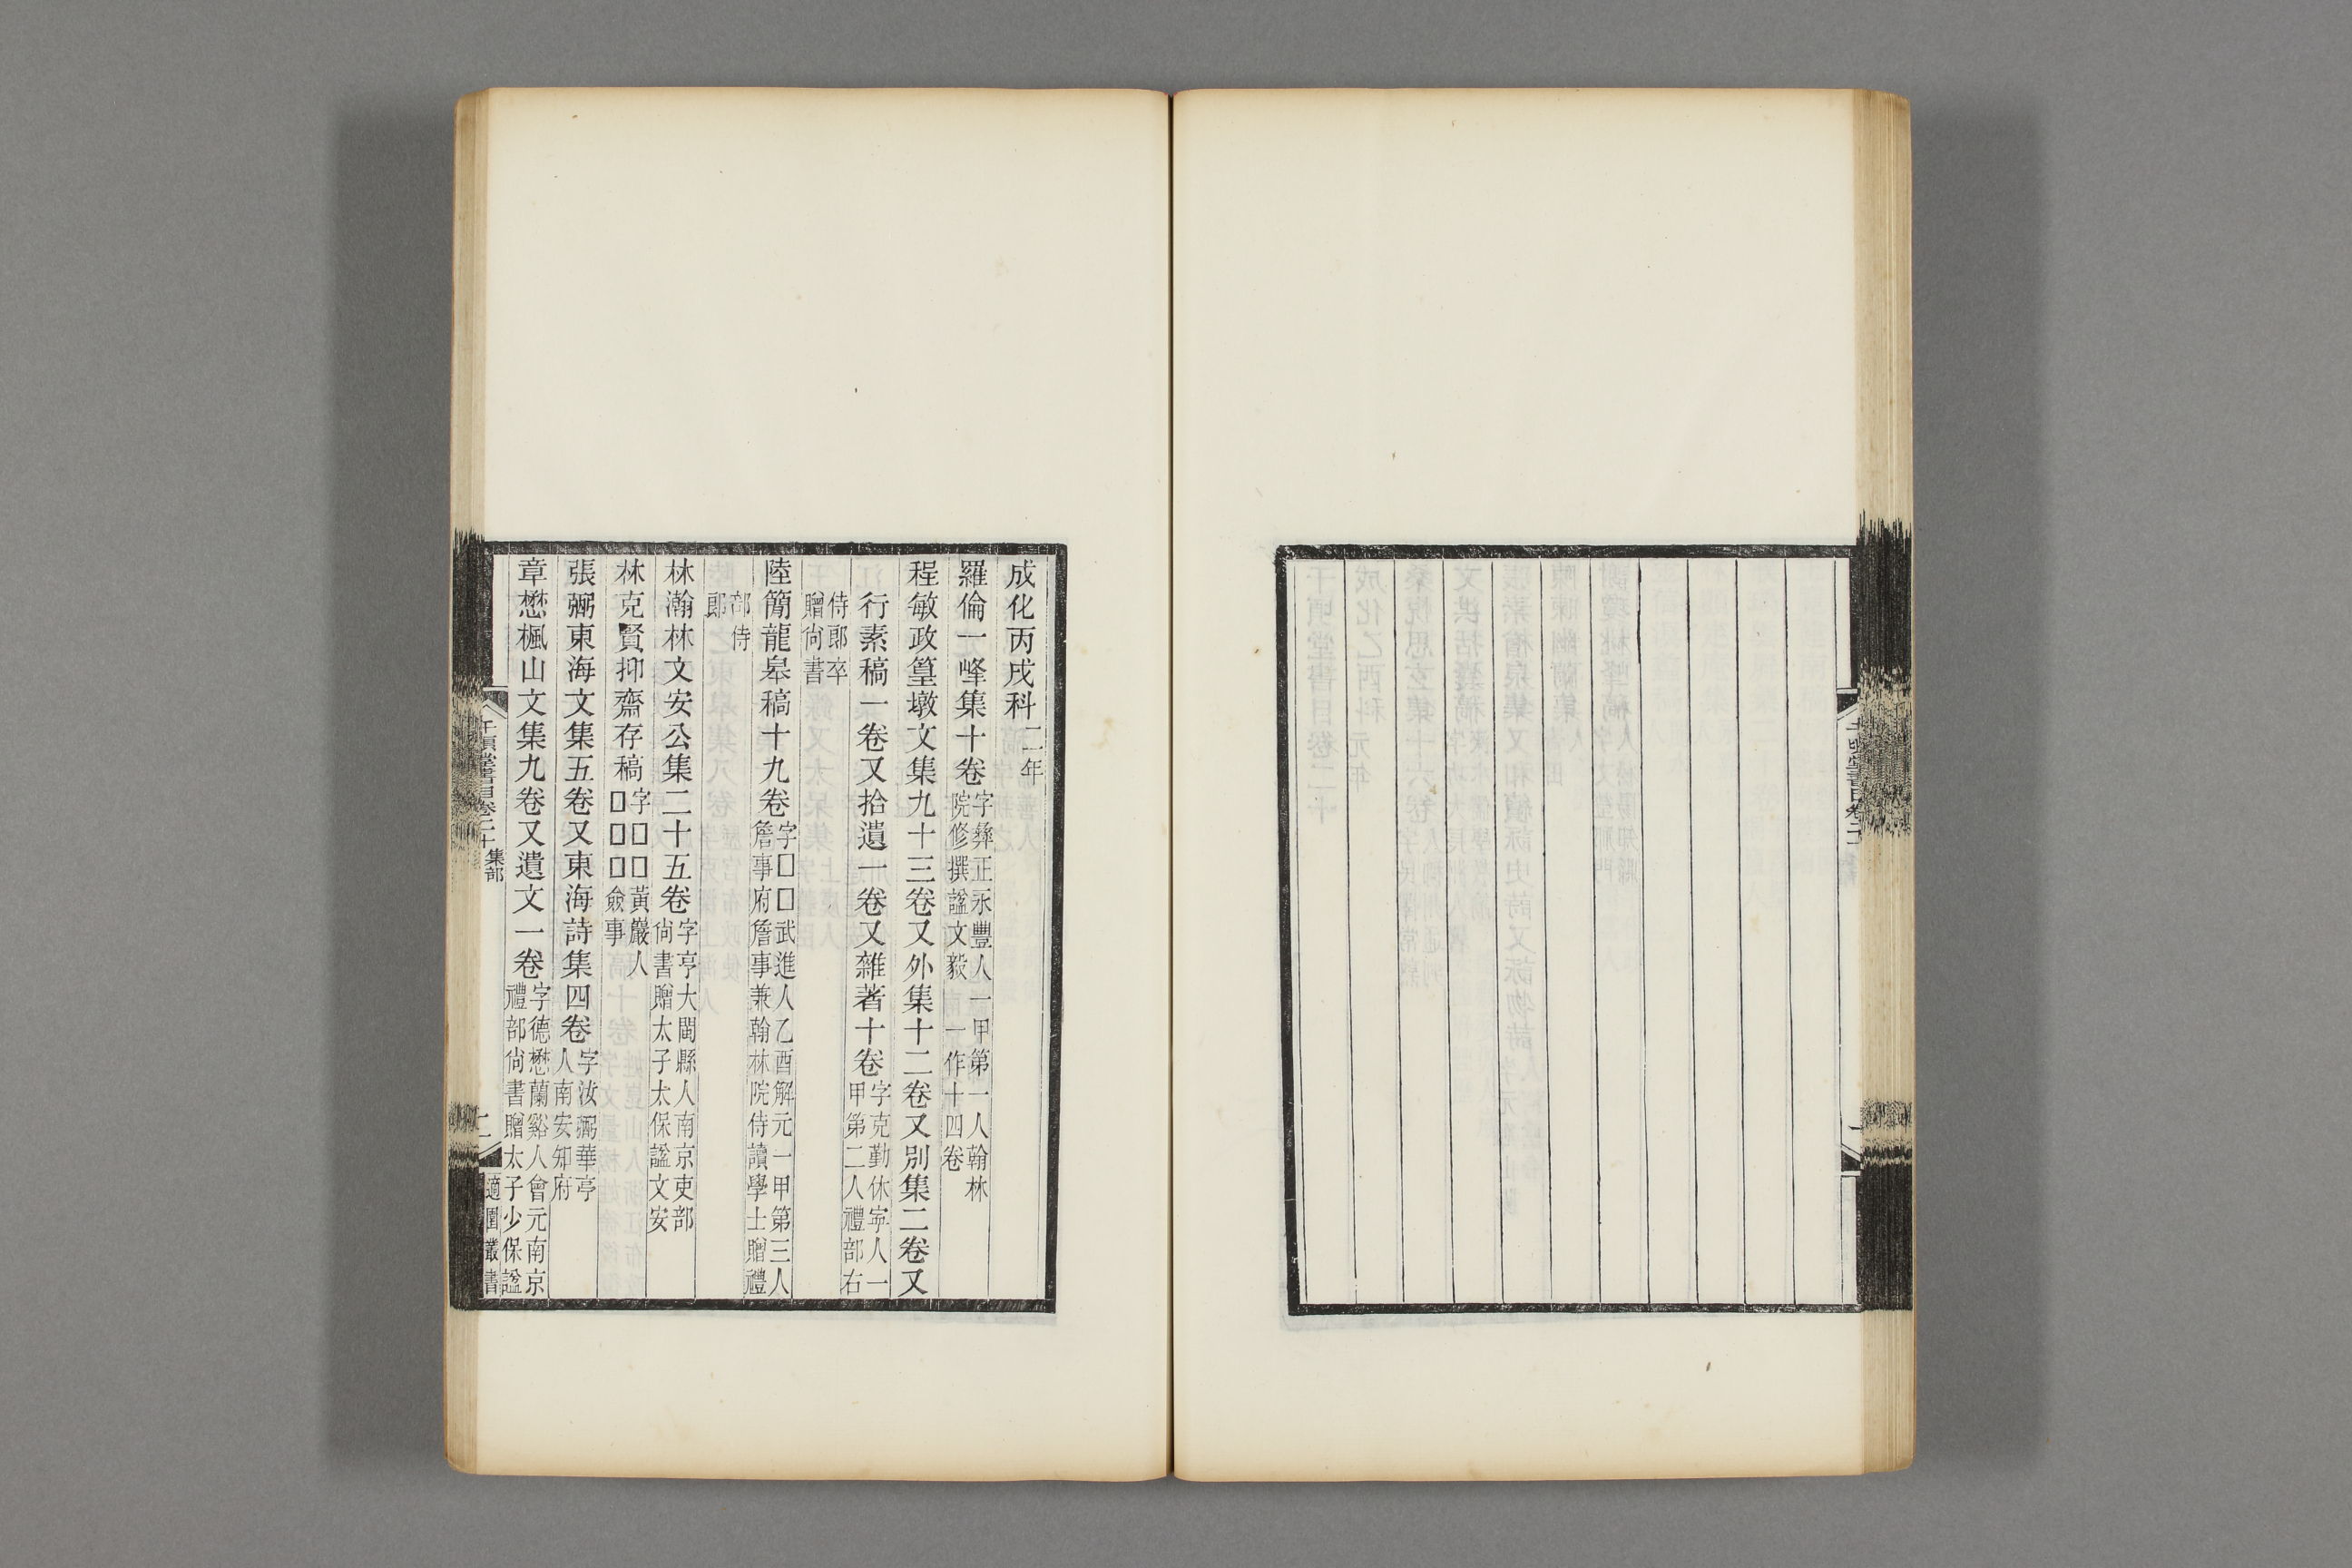 成化丙戌科二年
羅倫一峰集十卷字彝正永豐人一甲第一人翰林院修撰諡文毅 一作十四卷
程敏政篁墩文集九十三卷又外集十二卷又別集二卷又
行素稿一卷又拾遺一卷又雜著十卷字克勤休寧人一甲第二人禮部右
侍郎卒贈尚書
陸簡龍皋稿十九卷字□□武進人乙酉解元一甲第三人詹事府詹事兼翰林院侍讀學士贈禮
部侍郎
林瀚林文安公集二十五卷字亨大閩縣人南京吏部尚書贈太子太保諡文安
林克賢抑齋存稿字□□黃巖人□□□僉事
張弼東海文集五卷又東海詩集四卷字汝弼華亭人南安知府
章懋楓山文集九卷又遺文一卷字德懋蘭谿人會元南京禮部尚書贈太子少保諡
千頃堂書目卷二十 集部
適園叢書